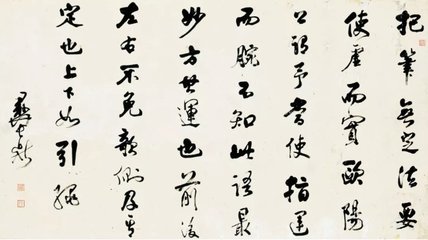 把筆無定法要
使虛而寬歐陽
公謂予當使指運
而腕不知此語最
妙方其運也前後
左右不免欹側及其
定也上下如引繩